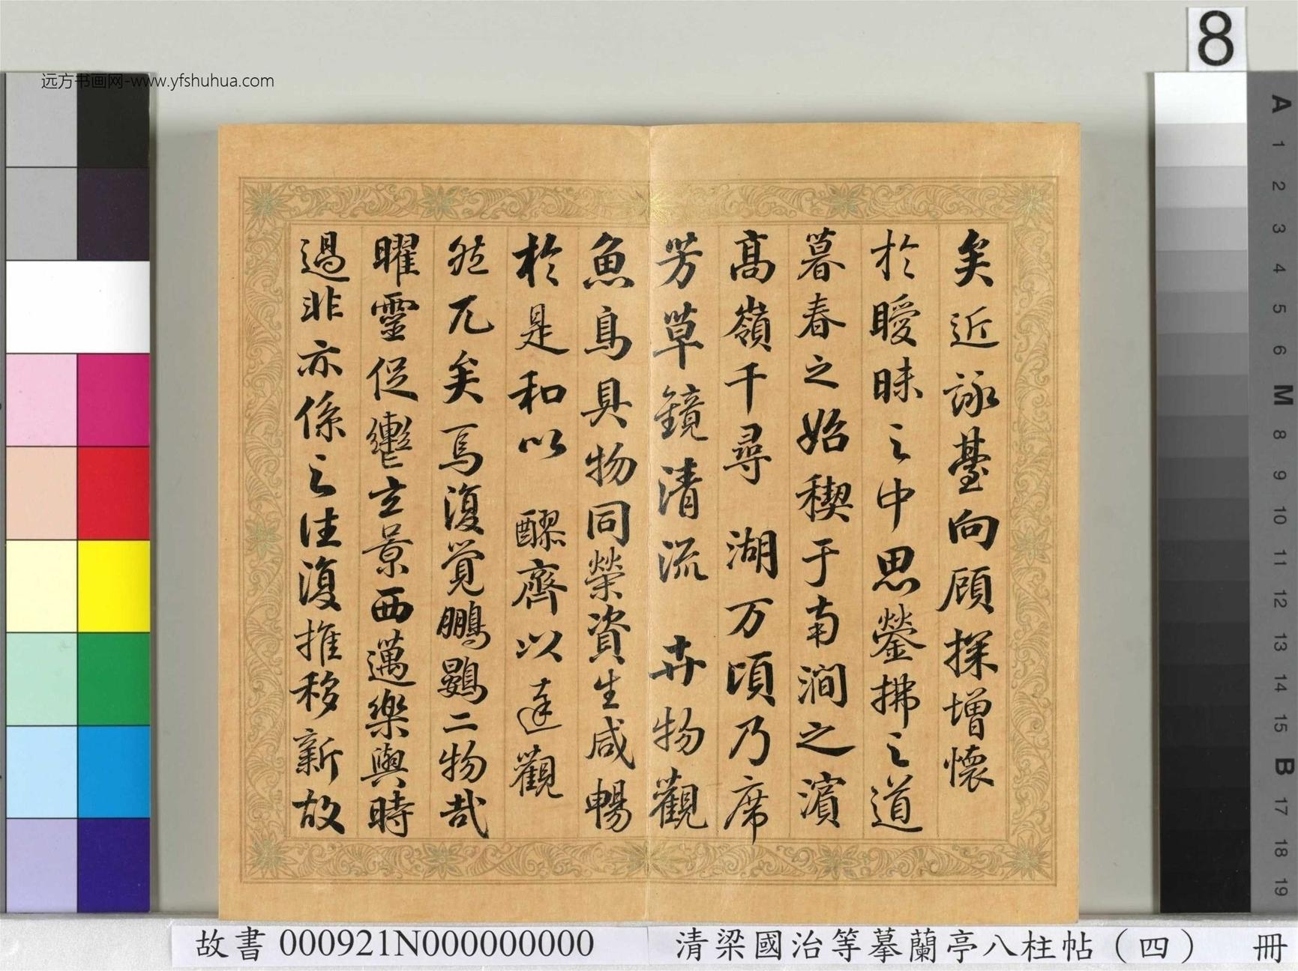 远方书画网-www.yfshuhua.com
8
矣近詠臺向顧探增懷
於曖昧之中思鎣拂之道
暮春之始稧于南澗之濱
高嶺千尋 湖万頃乃席
芳草鏡清流 卉物觀
魚鳥具物同榮資生咸暢
於是和以 醪齊以達觀
然兀矣焉復覺鵬鷃二物哉
曜靈促轡玄景西邁樂與時
過非亦係之往復推移新故
A 1 2 3 4 5 6 M 8 9 10 11 12 13 14 15 B 17 18 19
故書 000921N000000000 清梁國治等摹蘭亭八柱帖（四） 冊